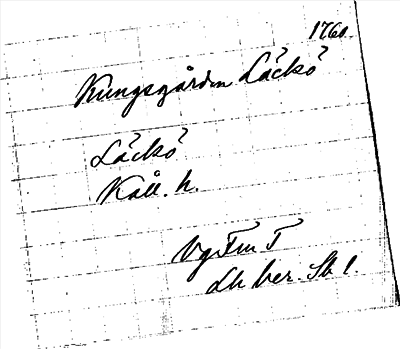 1760.
Kungsgården Läckö
Läckö
Kåll. h.
Vg Fm T
Lh ber. Sk 1.